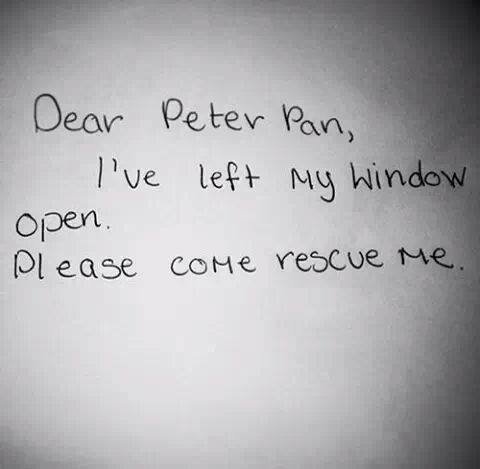 Dear Peter Pan,
I've left My Window
open.
Please coMe rescue Me.